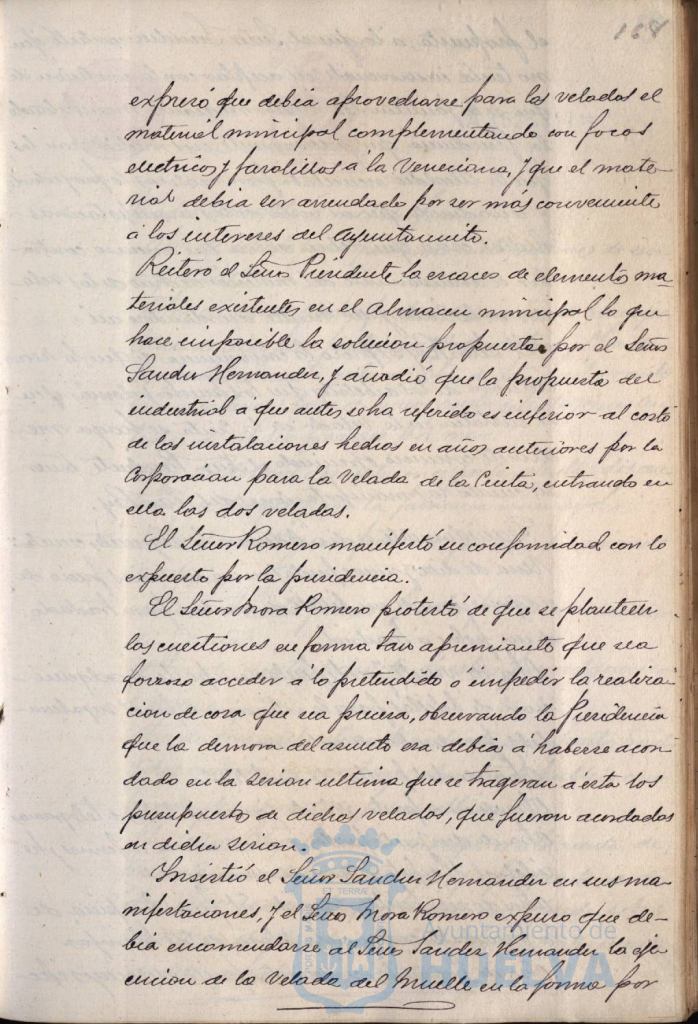 168
expresó que debia aprovecharse para las veladas el
material municipal complementando con focos
electricos y farolillos á la Veneciana, y que el mate-
rial debia ser arrendado por ser más conveniente
á los intereses del Ayuntamiento.
Reiteró el Señor Presidente la escaces de elementos ma-
teriales existentes en el almacen municipal lo que
hace imposible la solucion propuesta por el Señor
Sanchez Hernandez, y añadió que la propuesta del
industrial á que antes se ha referido es inferior al costo
de las instalaciones hechas en años anteriores por la
Corporacion para la Velada de la Cinta, entrando en
ella las dos veladas.
El Señor Romero manifestó su conformidad con lo
expuesto por la presidencia.
El Señor Mora Romero protestó de que se planteen
las cuestiones en forma tan apremiante que sea
forzoso acceder á lo pretendido ó impedir la realiza-
cion de cosa que sea precisa, observando la Presidencia
que la demora del asunto era debia á haberse acor-
dado en la sesion ultima que se trageran á esta los
presupuestos de dichas veladas, que fueron acordadas
en dicha sesion.
Insistió el Señor Sanchez Hernandez en sus ma-
nifestaciones, y el Señor Mora Romero expuso que de-
bia encomendarse al Señor Sanchez Hernandez la eje-
cucion de la Velada del Muelle en la forma por
Ayuntamiento de
HUELVA